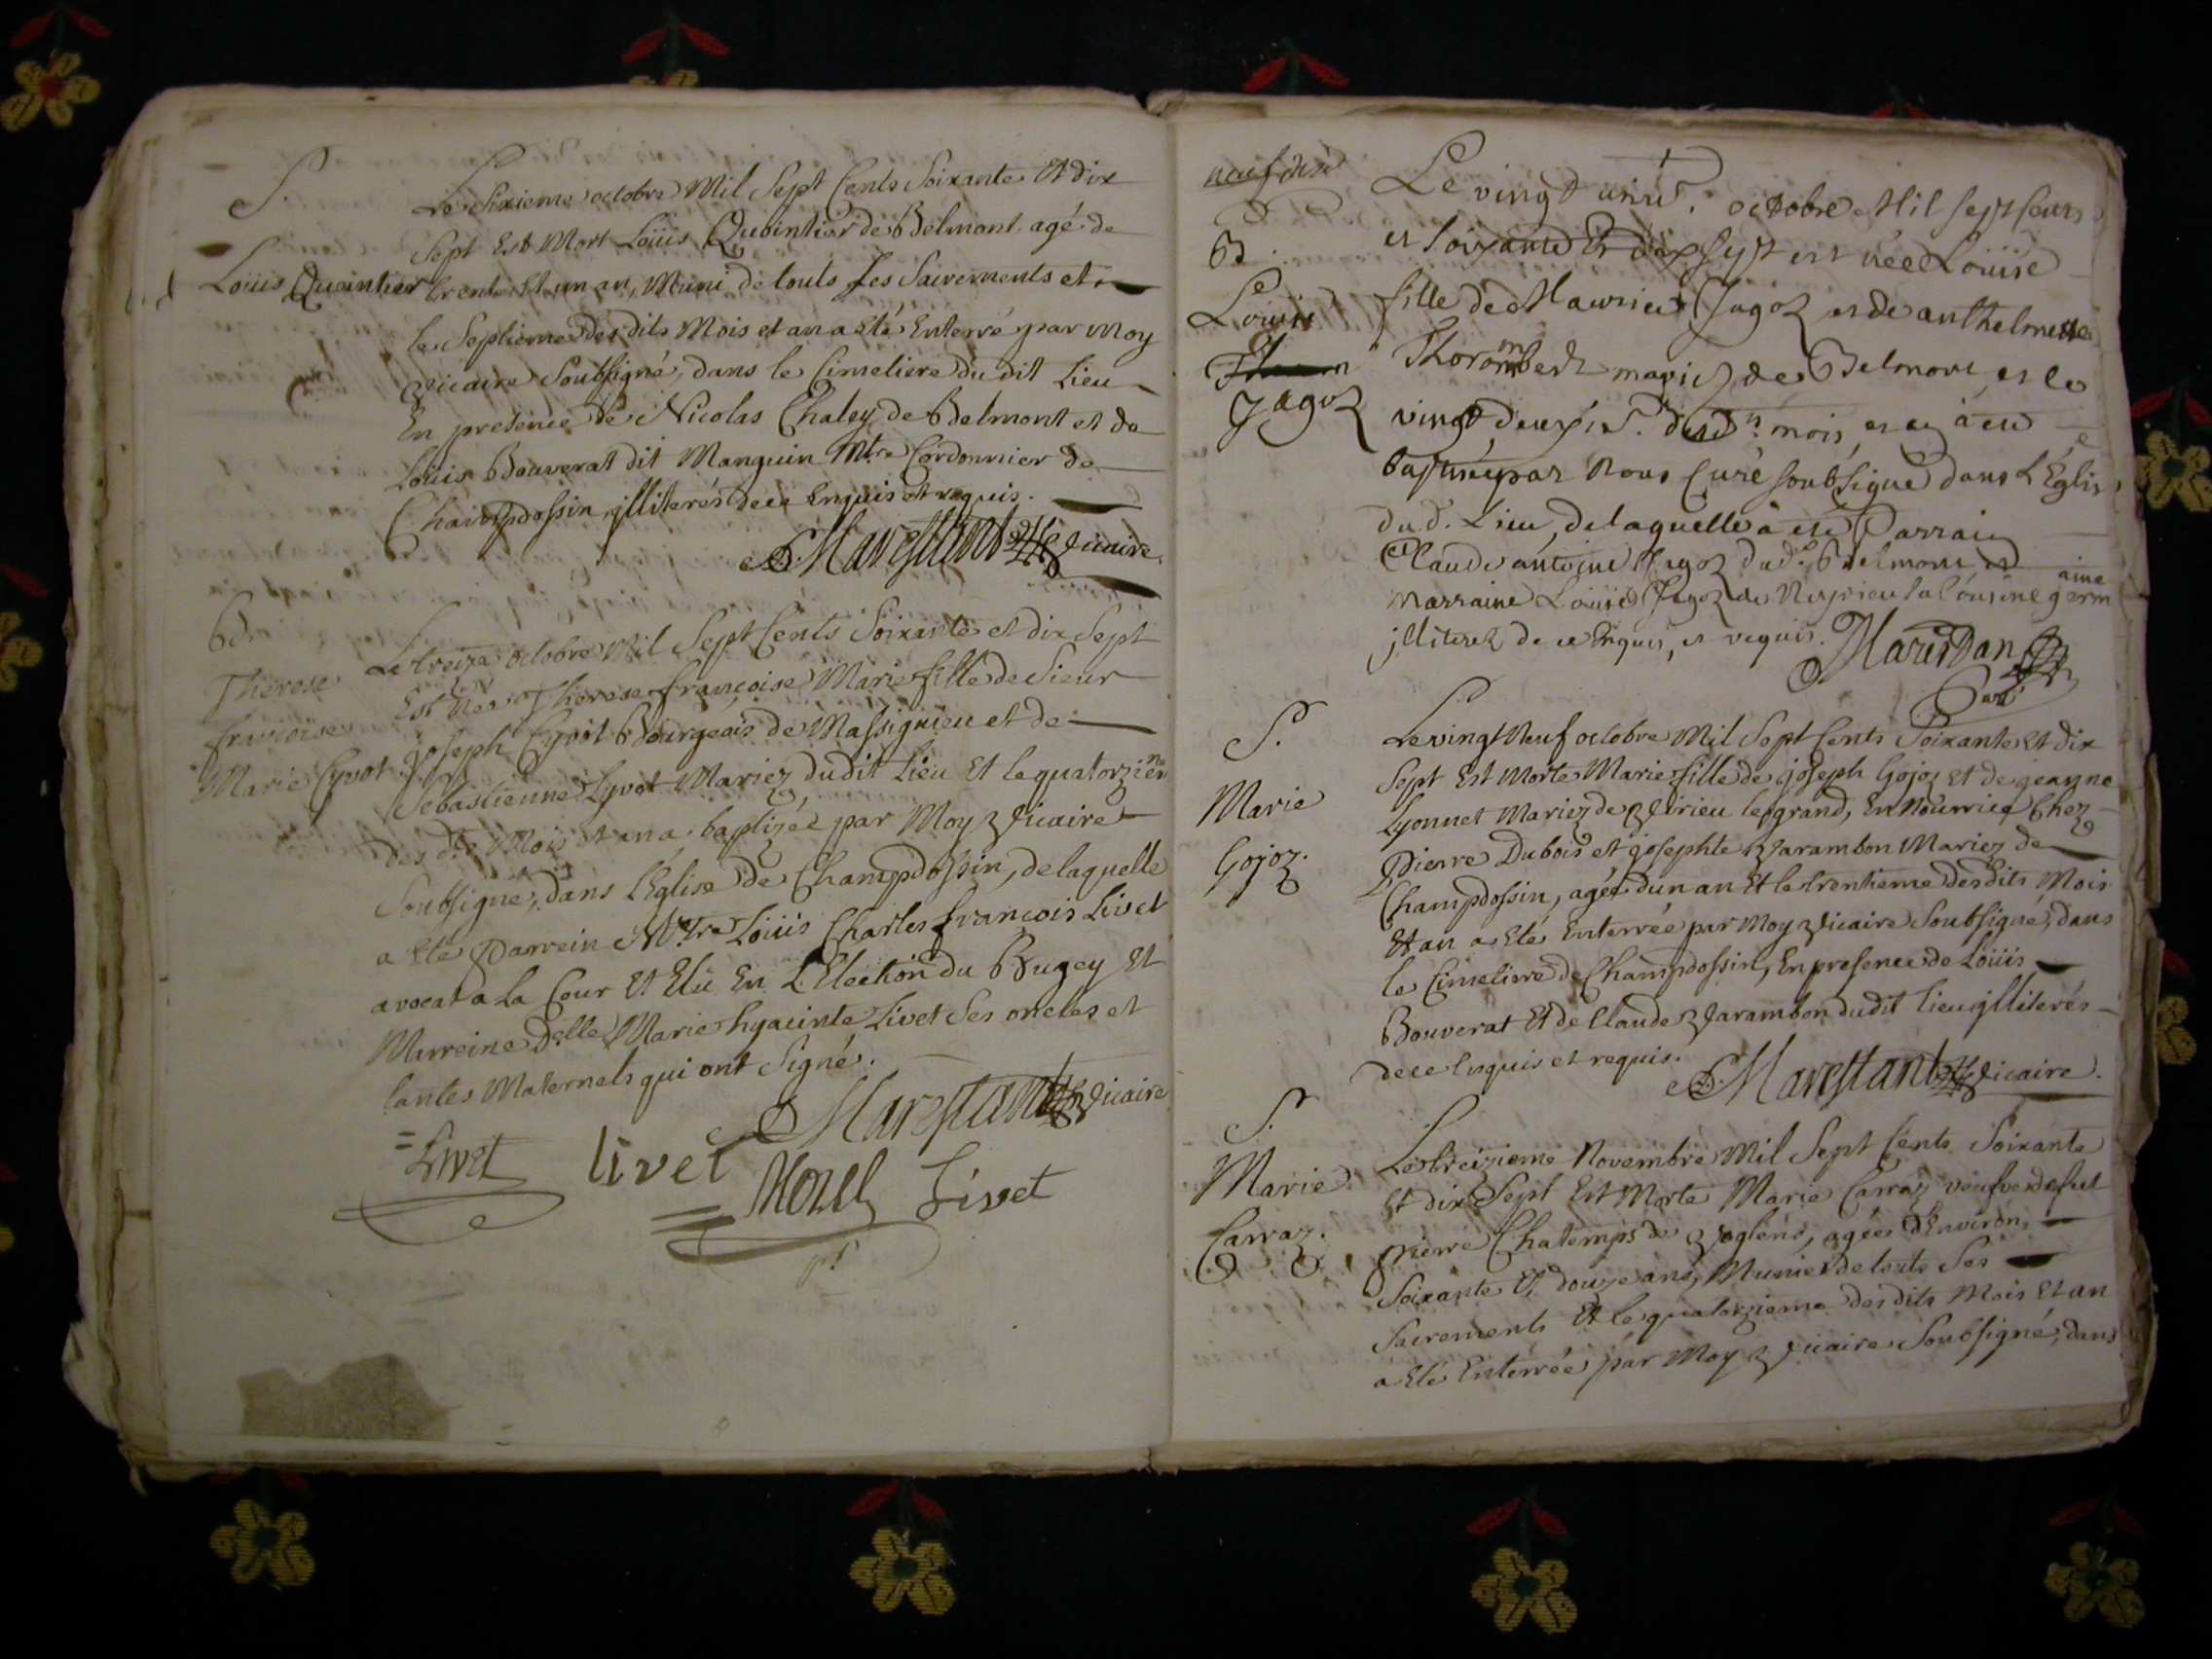 S.
Loüis Quointier
Le Sixieme octobre Mil Sept Cents Soixante Et dix
Sept Est Mort Loüis Quointier de Belmont agé de
trente Et un an, Muni de touts Ses Sacrements et
le Septieme des dits Mois et an a Eté Enterré par Moy
vicaire Soubsigné, dans le Cimetiere du dit Lieu
En presence de Nicolas Chaley de Belmont et de
Loüis Bouverat dit Manguin Mtre Cordonnier de
Champdossin jlliterés de ce Enquis et requis.
Marestant vicaire
B.
Therese
francoise
Marie Cyvot
Le treize octobre Mil Sept Cents Soixante et dix Sept
Est Née Therese françoise Marie fille de Sieur
joseph Cyvot Bourgeois de Massignieu et de
Sebastienne Lyvet Mariez dudit Lieu Et le quatorzieme
des dts Mois et an a baptizée par Moy vicaire
Soubsigné, dans l'Eglise de Champdossin, de laquelle
a Eté Parrein Mtre Loüis Charles françois Livet
avocat a La Cour Et Elü En L'Election du Bugey Et
Marreine Delle Marie hyacinte Livet Ses oncles et
tantes Maternels qui ont Signé.
Marestant vicaire
Livet livet Morel Livet
B.
Louise
Jagoz
Le vingt unie. octobre Mil sept cents
et soixante Et dix sept est née Loüise
fille de Maurice Jagoz et de anthelmette
Thorombert mariez de Belmont et le
vingt deuxie. dud. mois et an à eté
baptisée par Nous Curé soubsigné dans L'Eglise
dud. Lieu, de laquelle à eté Parrain
Claude antoine Jagoz dud. Belmont et
Marraine Loüise Jagoz de sa Cousine germaine
jlliterez de ce Enquis, et requis.
Marestan
Curé
S.
Marie
Gojoz.
Le vingt Neuf octobre Mil Sept Cents Soixante Et dix
Sept Est Morte Marie fille de joseph Gojoz Et de jeanne
Lyonnet Mariez de Virieu le grand, En Nourrice Chez
Pierre Dubois et josephte Varambon Mariez de
Champdossin, agée d'un an Et le trentieme des dits Mois
Et an a Eté Enterrée par Moy vicaire Soubsigné, dans
le Cimetiere de Champdossin, En presence de Loüis
Bouverat Et de Claude Varambon dudit lieu jlliterés
de ce Enquis et requis.
Marestant vicaire.
S.
Marie
Carraz.
Le treizieme Novembre Mil Sept Cents Soixante
Et dix Sept Est Morte Marie Carraz veufve de fut
pierre Chatemps de Voglens, agée d'Environ
Soixante Et douze ans, Munie de touts Ses
Sacrements Et le quatorzieme des dits Mois Et an
a Eté Enterrée par Moy vicaire Soubsigné, dans